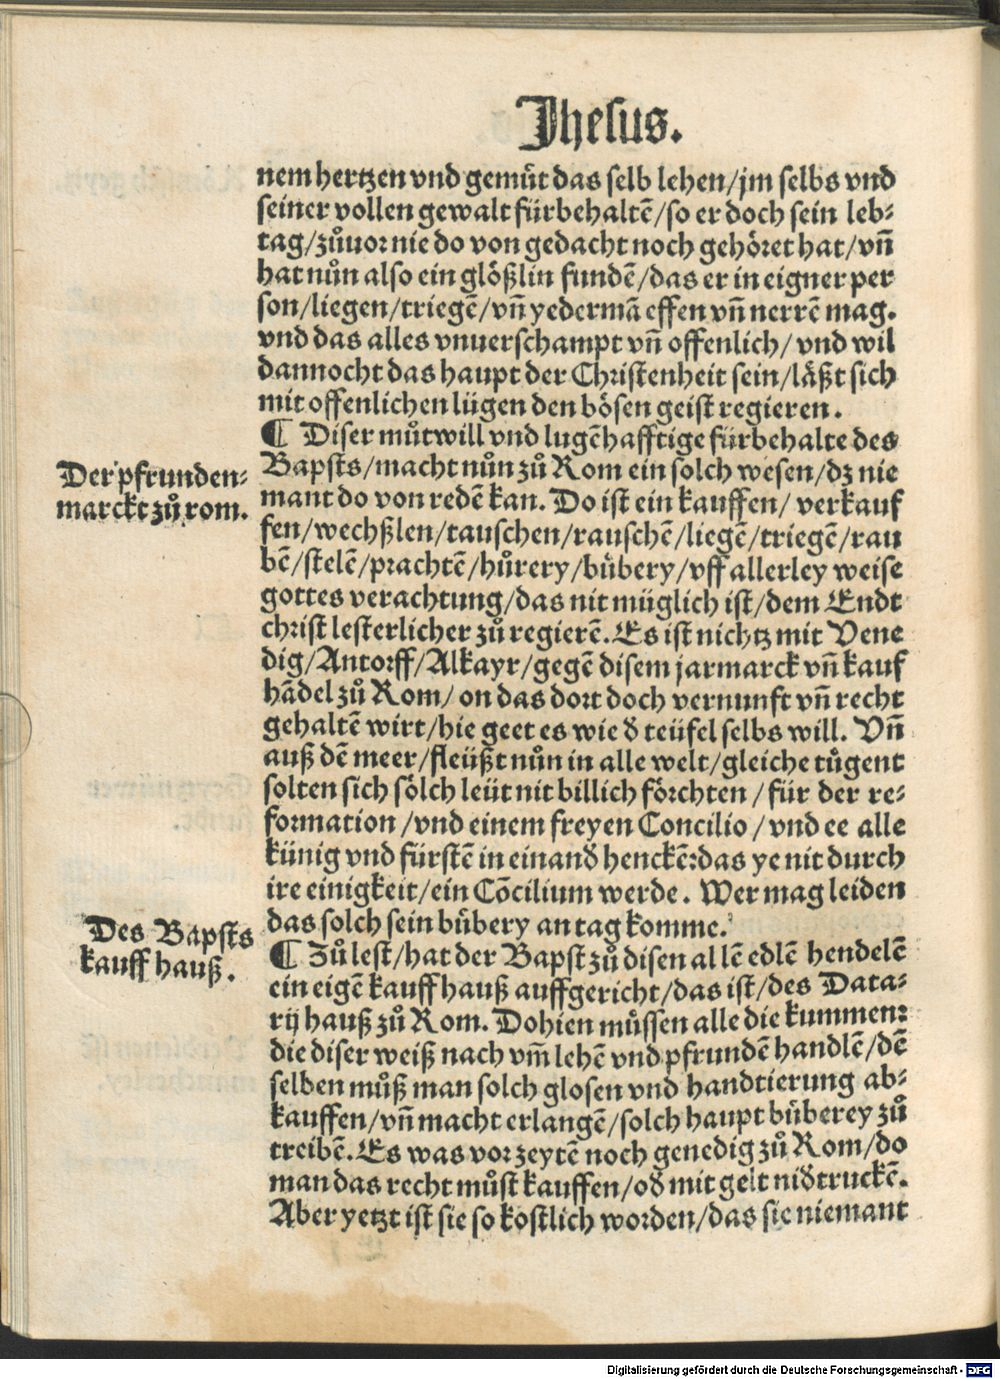 Jhesus.
nem hertzen vnd gemüt das selb lehen/jm selbs vnd
seiner vollen gewalt fürbehaltẽ/so er doch sein leb⸗
tag/zůuor nie do von gedacht noch gehöret hat/vñ
hat nůn also ein glößlin fundẽ/das er in eigner per
son/liegen/triegẽ/vñ yedermã effen vñ nerrẽ mag.
vnd das alles vnuerschampt vñ offenlich/ vnd wil
dannocht das haupt der Christenheit sein/läßt sich
mit offenlichen lügen den bösen geist regieren.
¶ Diser můtwill vnd lugẽhafftige fürbehalte des
Der pfrunden⸗
marckt zů rom.
Bapsts/macht nůn zů Rom ein solch wesen/dz nie
mant do von redẽ kan. Do ist ein kauffen/ verkauf
fen/wechßlen/tauschen/rauschẽ/liegẽ/triegẽ/rau
bẽ/stelẽ/prachtẽ/hůrery/bübery/vff allerley weise
gottes verachtung/das nit müglich ist/dem Endt
christ lesterlicher zů regierẽ. Es ist nichtz mit Vene
dig/Antorff/Alkayr/gegẽ disem jarmarck vñ kauf
hãdel zů Rom/ on das dort doch vernunft vñ recht
gehaltẽ wirt/hie geet es wie d̕ teüfel selbs will. Vñ
auß dẽ meer/fleüßt nůn in alle welt/gleiche tůgent
solten sich sölch leüt nit billich förchten/für der re⸗
formation/vnd einem freyen Concilio/vnd ee alle
künig vnd fürstẽ in einand̕ henckẽ:das ye nit durch
ire einigkeit/ein Cõcilium werde. Wer mag leiden
das solch sein bübery an tag komme.
Des Bapsts
kauff hauß.
¶ Zů lest/hat der Bapst zů disen allẽ edlẽ hendelẽ
ein eigẽ kauff hauß auffgericht/das ist/des Data⸗
rij hauß zů Rom. Dohien müssen alle die kummen:
die diser weiß nach vm̃ lehẽ vnd pfrundẽ handlẽ/dẽ
selben můß man solch glosen vnd handtierung ab⸗
kauffen/vñ macht erlangẽ/solch haupt büberey zů
treibẽ. Es was vor zeytẽ noch genedig zů Rom/do
man das recht můst kauffen/od̕ mit gelt nid̕truckẽ.
Aber yetzt ist sie so kostlich worden/das sie niemant
Digitalisierung gefördert durch die Deutsche Forschungsgemeinschaft - DFG